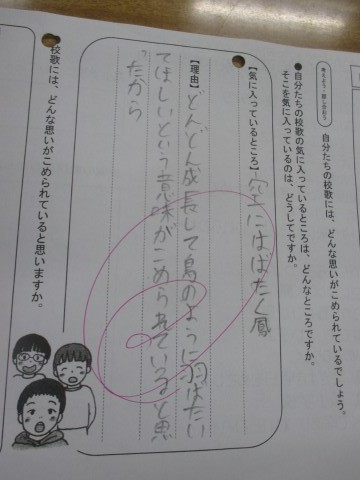 考えよう・話し合おう
自分たちの校歌には、どんな思いがこめられているでしょう。
●自分たちの校歌の気に入っているところは、どんなところですか。
そこを気に入っているのは、どうしてですか。
【気に入っているところ】空にはばたく鳳
【理由】どんどん成長して鳥のように羽ばたい
てほしいという意味がこめられていると思
ったから
校歌には、どんな思いがこめられていると思いますか。